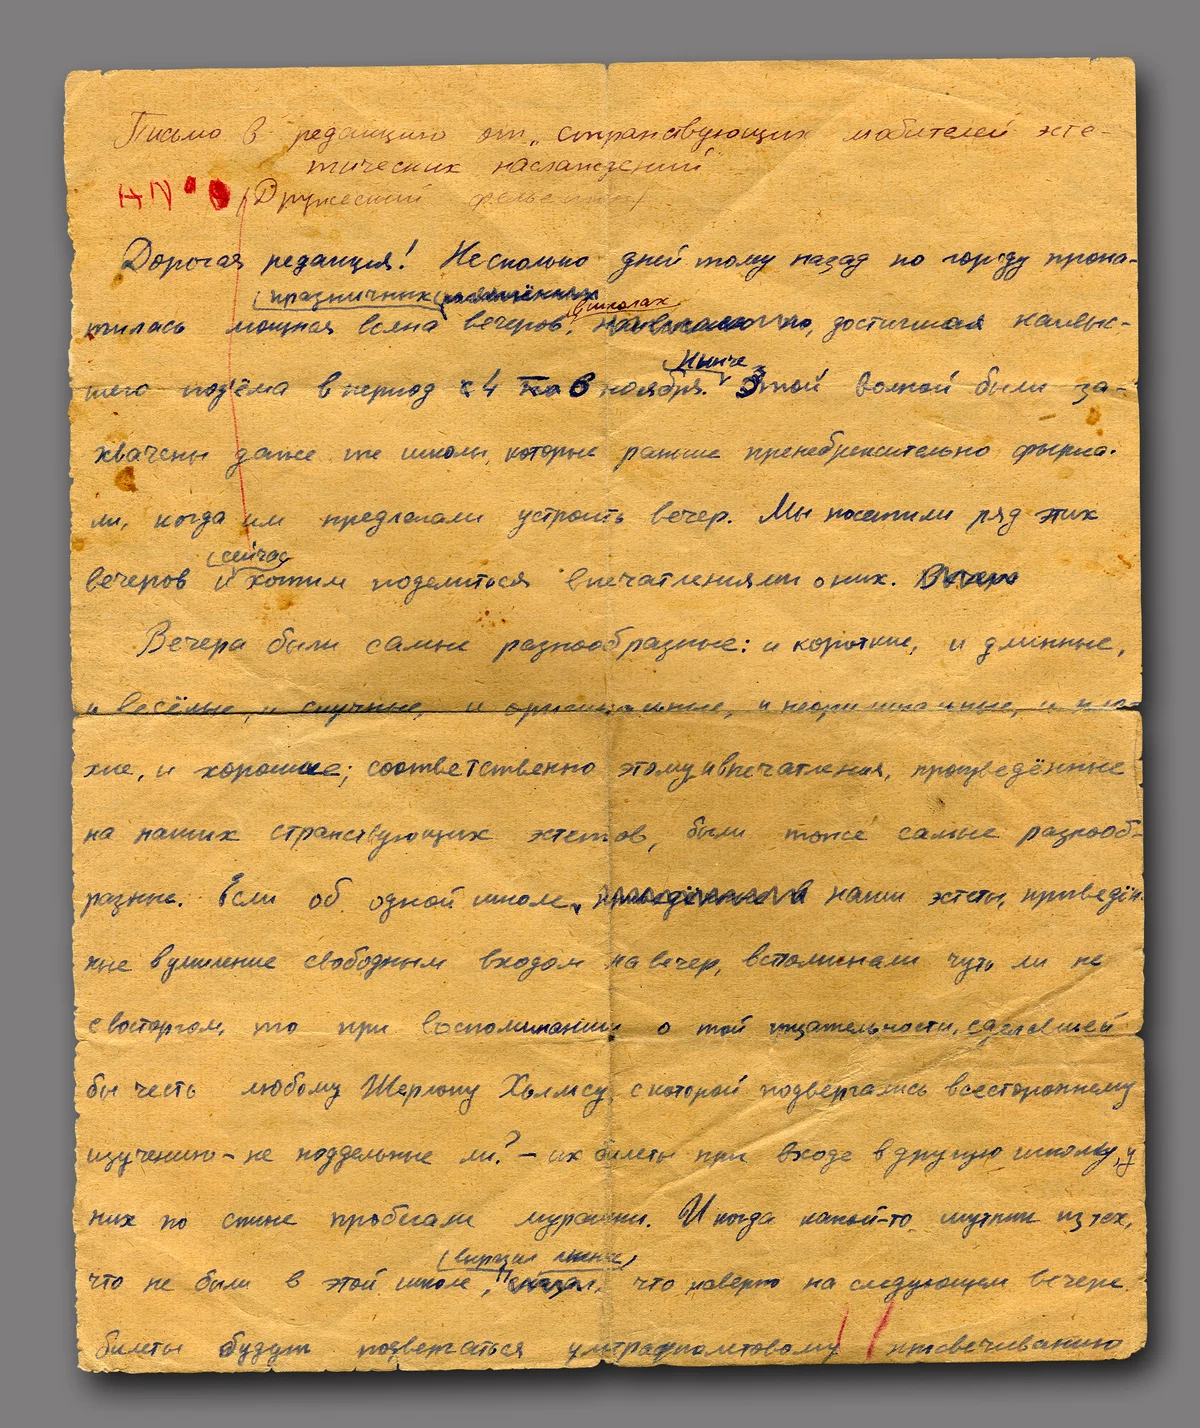 Письмо в редакцию от „странствующих любителей эсте-
тических наслаждений"
(Дружеский фельетон)
Дорогая редакция! Несколько дней тому назад по городу прока-
(праздничных
в школах
тилась мощная волна вечеров, достигшая наивыс-
Нынче
шего подъёма в период с 4 по 6 ноября. Этой волной были за-
хвачены даже те школы, которые раньше пренебрежительно фырка-
ли, когда им предлагали устроить вечер. Мы посетили ряд этих
(сейчас
вечеров и хотим поделиться впечатлениями о них.
Вечера были самые разнообразные: и короткие, и длинные,
и весёлые, и скучные, и оригинальные, и неоригинальные, и пло-
хие, и хорошие; соответственно этому и впечатления, произведённые
на наших странствующих эстетов, были тоже самые разнооб-
разные. Если об одной школе, наши эстеты, приведён-
ные в умиление свободным входом на вечер, вспоминали чуть ли не
с восторгом, то при воспоминании о той тщательности, сделавшей
бы честь любому Шерлоку Холмсу, с которой подвергались всестороннему
изучению – не поддельные ли? – их билеты при входе в другую школу, у
них по спине пробегали мурашки. И когда какой-то шутник из тех,
что не были в этой школе, что наверно на следующем вечере
билеты будут подвергаться ультрафиолетовому просвечиванию